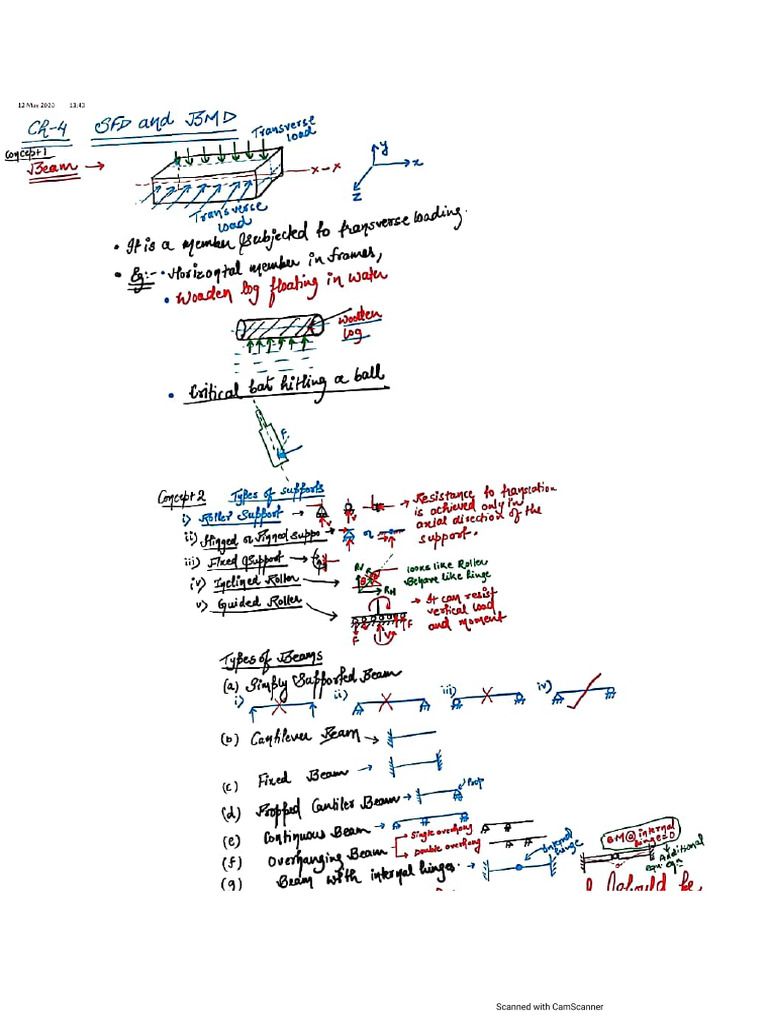 12 May 2020 13:43
CH-4 SFD and BMD
Transverse load
Concept 1
Beam →
x-x
y
x
z
Transverse load
• It is a member subjected to transverse loading.
• Eg:- • Horizontal member in frames,
• Wooden log floating in water
Wooden log
• Critical bat hitting a ball
F
Concept 2 Types of supports
i) Roller Support →
V
→ Resistance to translation is achieved only in axial direction of the support.
ii) Hinged or Pinned suppo →
or
iii) Fixed Support →
iv) Inclined Roller
RV R
RH
looks like Roller
Behave like hinge
v) Guided Roller
F V F
→ It can resist vertical load and moment
Types of Beams
(a) Simply Supported Beam
i) ii) iii) iv)
(b) Cantilever Beam →
(c) Fixed Beam →
(d) Propped Cantiler Beam →
Prop
(e) Continuous Beam →
(f) Overhanging Beam
→ Single overhang
→ Double overhang
(g) Beam with internal hinges. →
Internal hinge
BM@internal hinge=0
Additional
Should be
Scanned with CamScanner